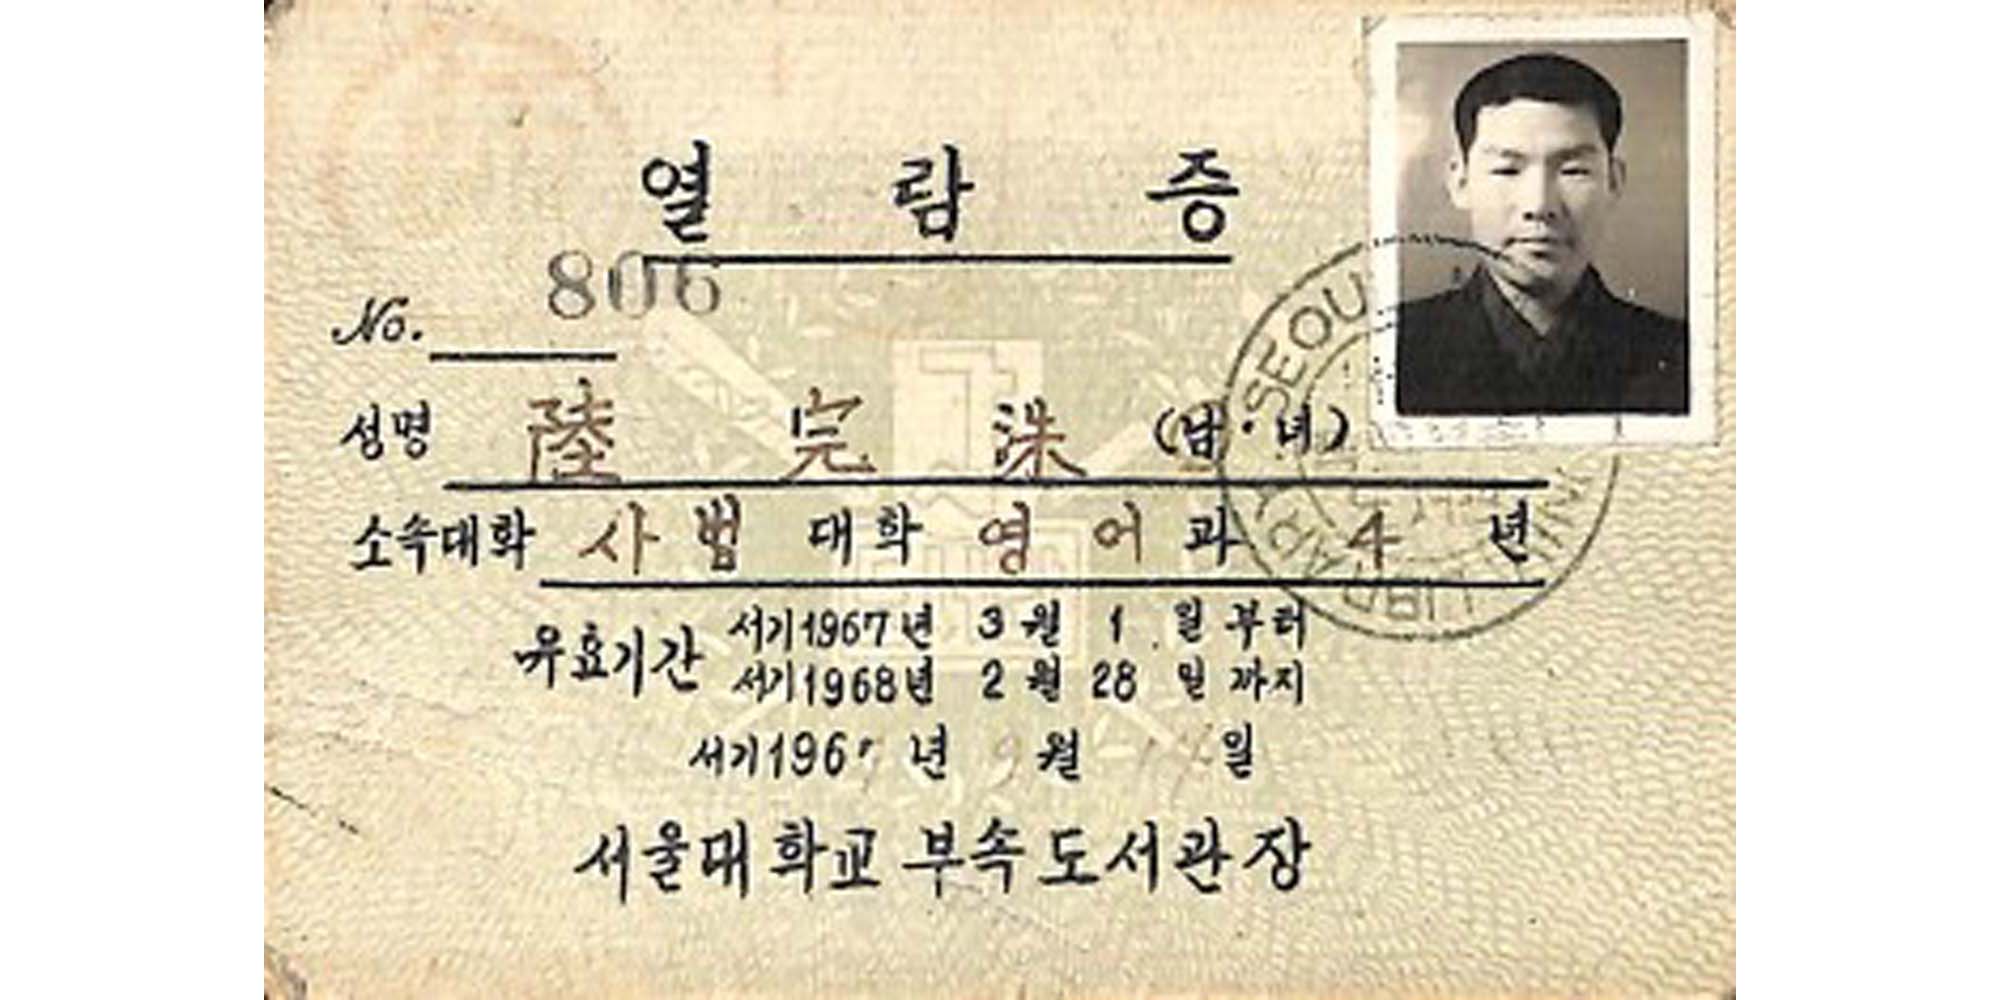 열람증
No. 806
성명 陸完洙 (남·녀)
소속대학 사범대학 영어과 4년
유효기간 서기1967년 3월 1일부터
서기1968년 2월 28일까지
서기196 년 월 일
서울대학교 부속도서관장
SEOUL
LIBRARY